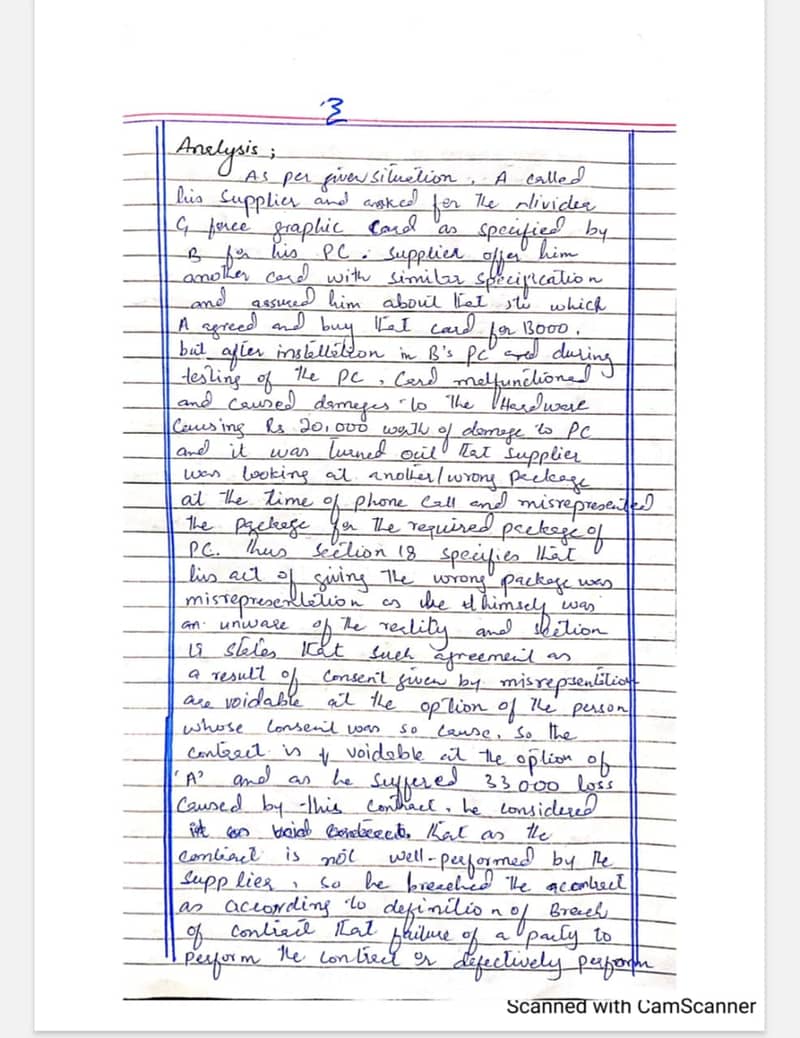 3
Analysis ;
As per given situation, A called
his supplier and asked for the Nividea
G force graphic Card as specified by
B for his PC. Supplier offer him
another card with similar specification
and assured him about that which
A agreed and buy that card for 13000.
but after installation in B's PC and during
testing of the PC, Card malfunctioned
and caused damages to the Hardware
Causing Rs 20,000 worth of damage to PC
and it was turned out that Supplier
was looking at another/wrong package
at the time of phone call and misrepresented
the package for the required package of
PC. Thus section 18 specifies that
his act of giving the wrong package was
misrepresentation as he himself was
an unware of the reality and section
19 states that such agreement as
a result of consent given by misrepsentation
are voidable at the option of the person
whose consent was so cause. So the
contract is voidable at the option of
'A' and as he suffered 33000 loss
Caused by this contract, he considered
that as the
contract is not well-performed by the
Supplier, so he breached the contract
as according to definition of Breach
of contract that failure of a party to
perform the contract or defectively perform
Scanned with CamScanner